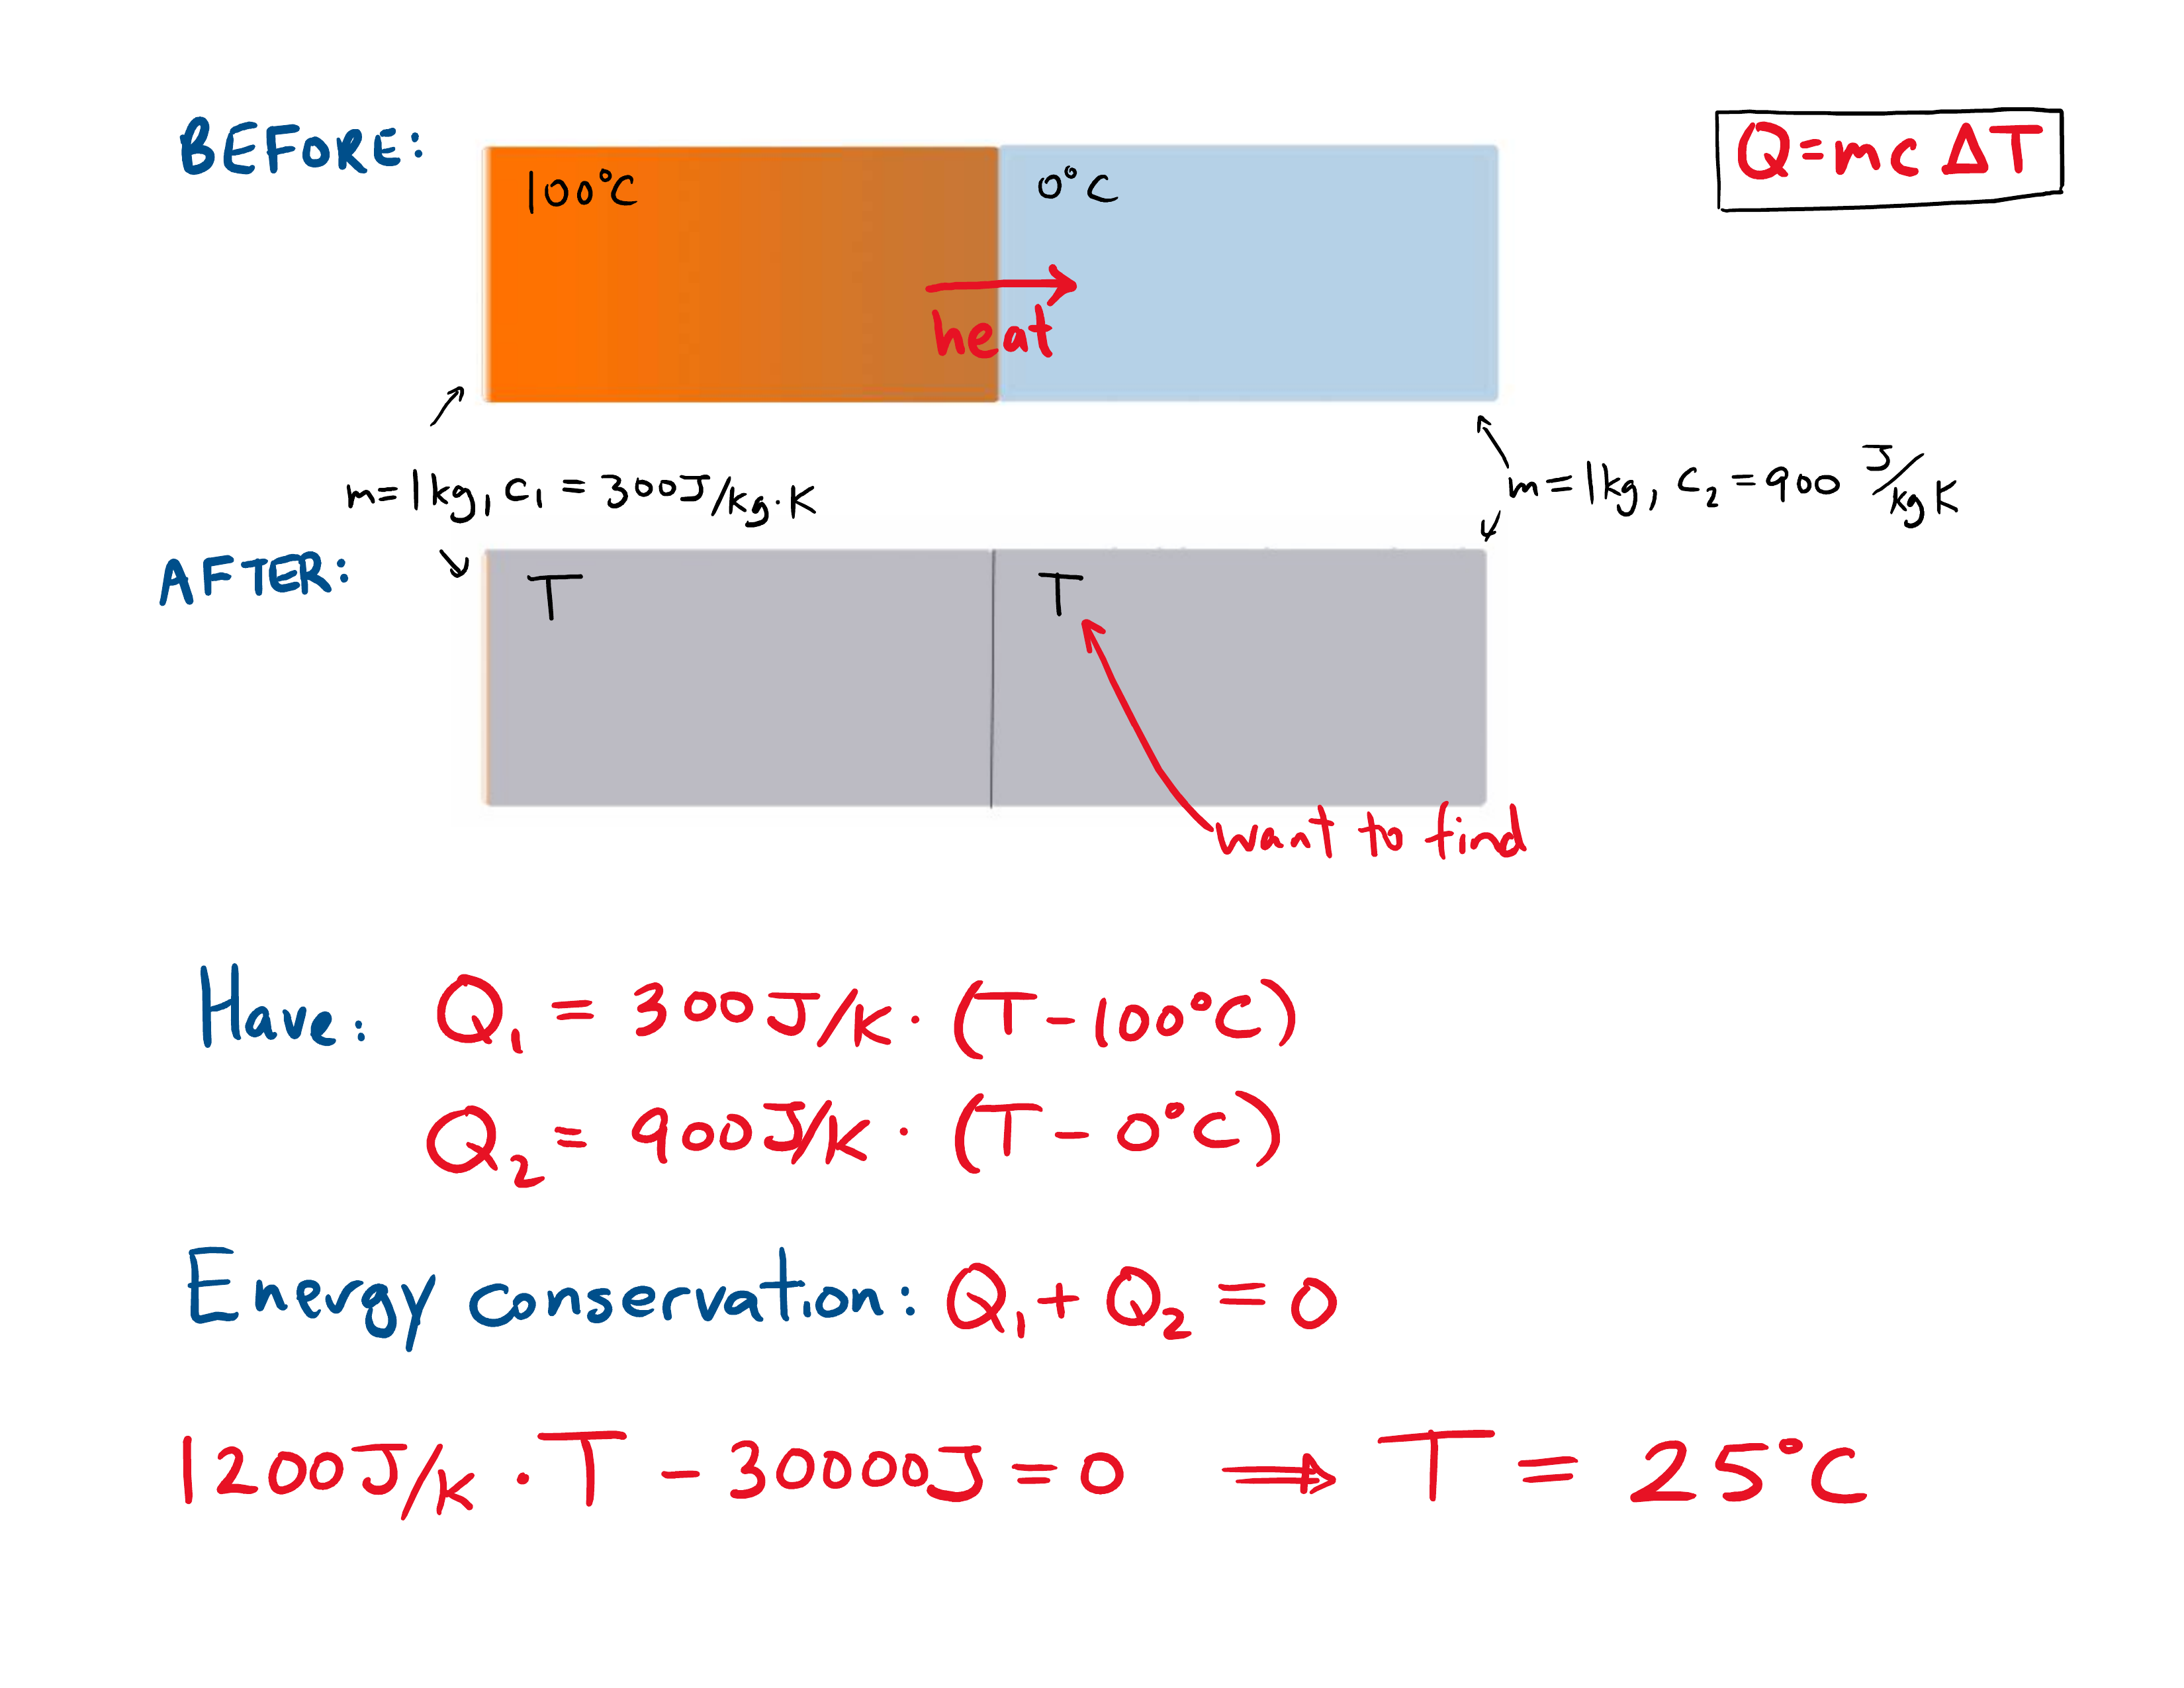 BEFORE:
100°C
0°C
Q=mcΔT
heat
m=1kg, c₁ = 300J/kg·K
m=1kg, c₂ = 900 J/kg K
AFTER:
T
T
want to find
Have: Q₁ = 300J/K · (T-100°C)
Q₂ = 900J/K · (T - 0°C)
Energy conservation: Q₁ + Q₂ = 0
1200J/K · T - 30000J = 0 ⇒ T = 25°C